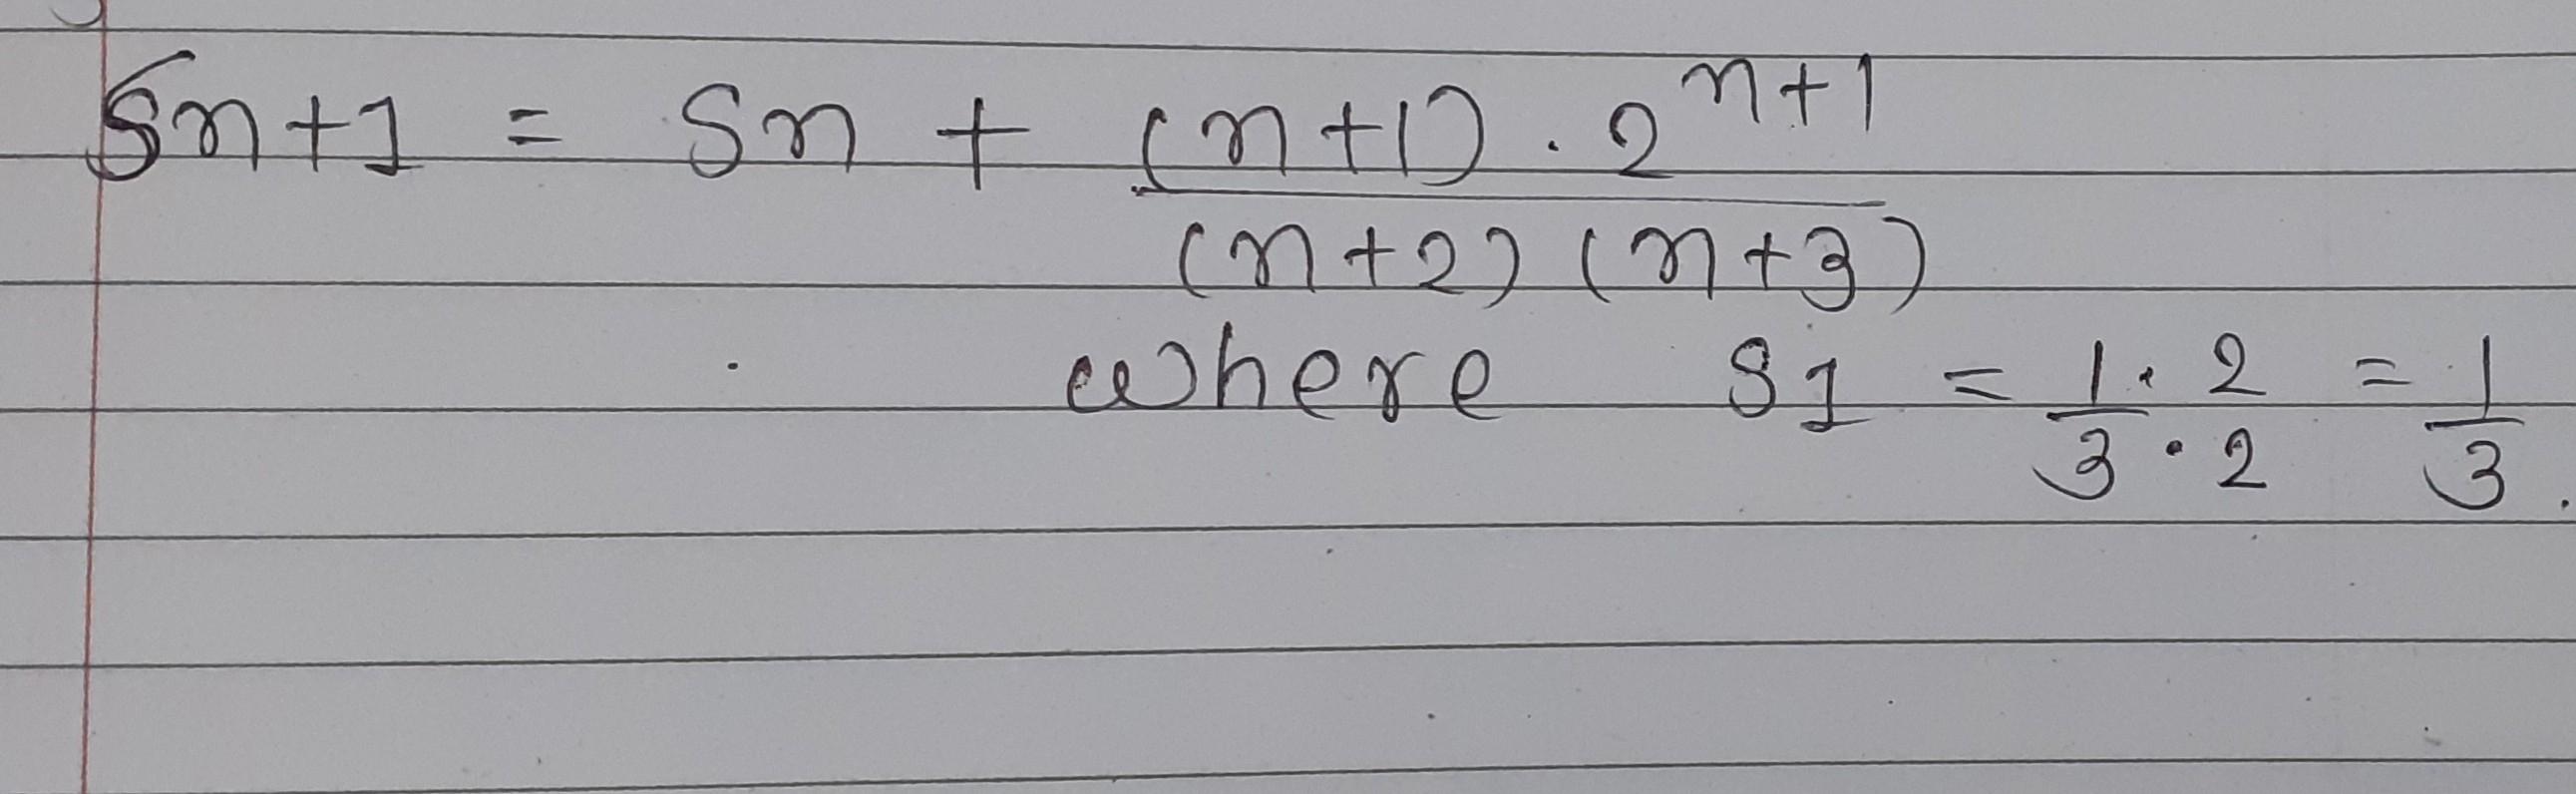 Sn+1 = Sn + (n+1) . 2^n+1
(n+2) (n+3)
where S1 = 1 . 2 = 1
3 . 2 3 .